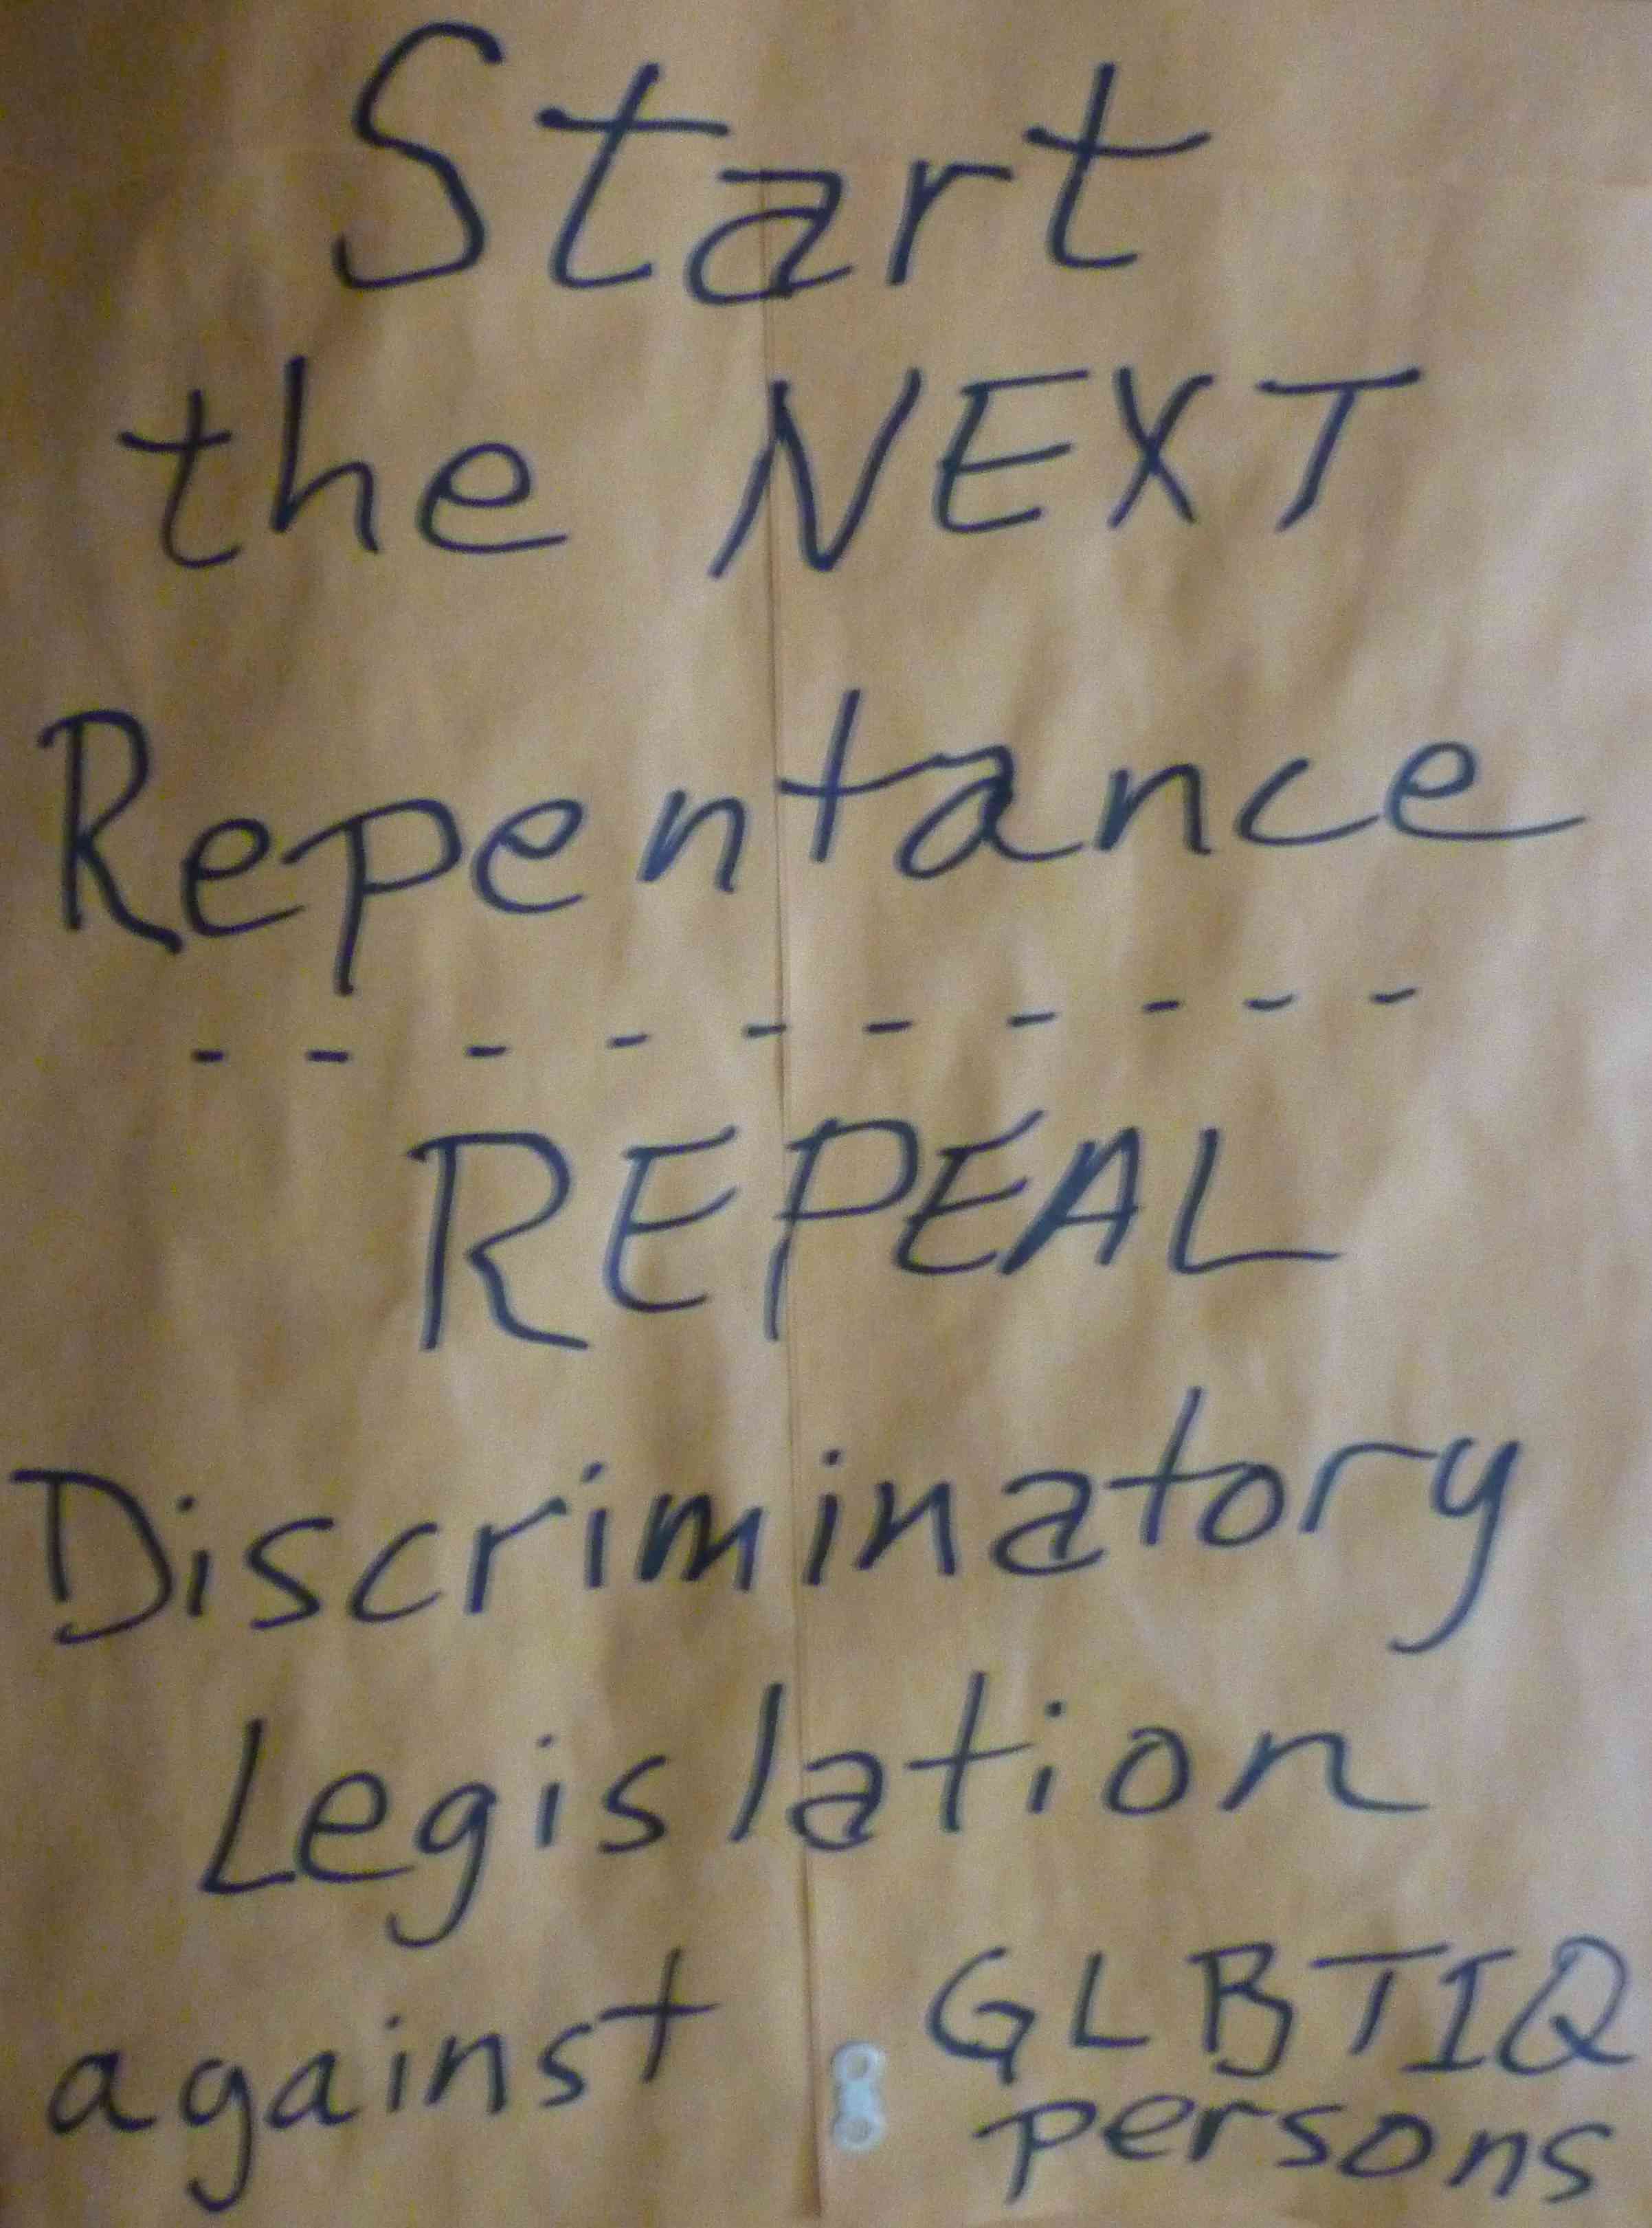 Start
the NEXT
Repentance
- - - - - - - - - -
REPEAL
Discriminatory
Legislation
against GLBTIQ
persons